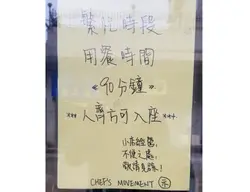 繁忙時段
用餐時間
«90分鐘»
***人齊方可入座***
小店經營,
不便之處,
敬請見諒!
CHEF'S MOVEMENT